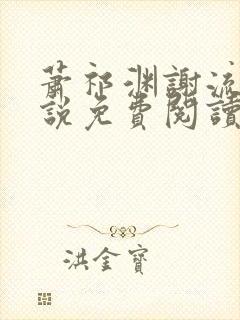 蕭祁渊謝流
說免費閱讀
洪金寶